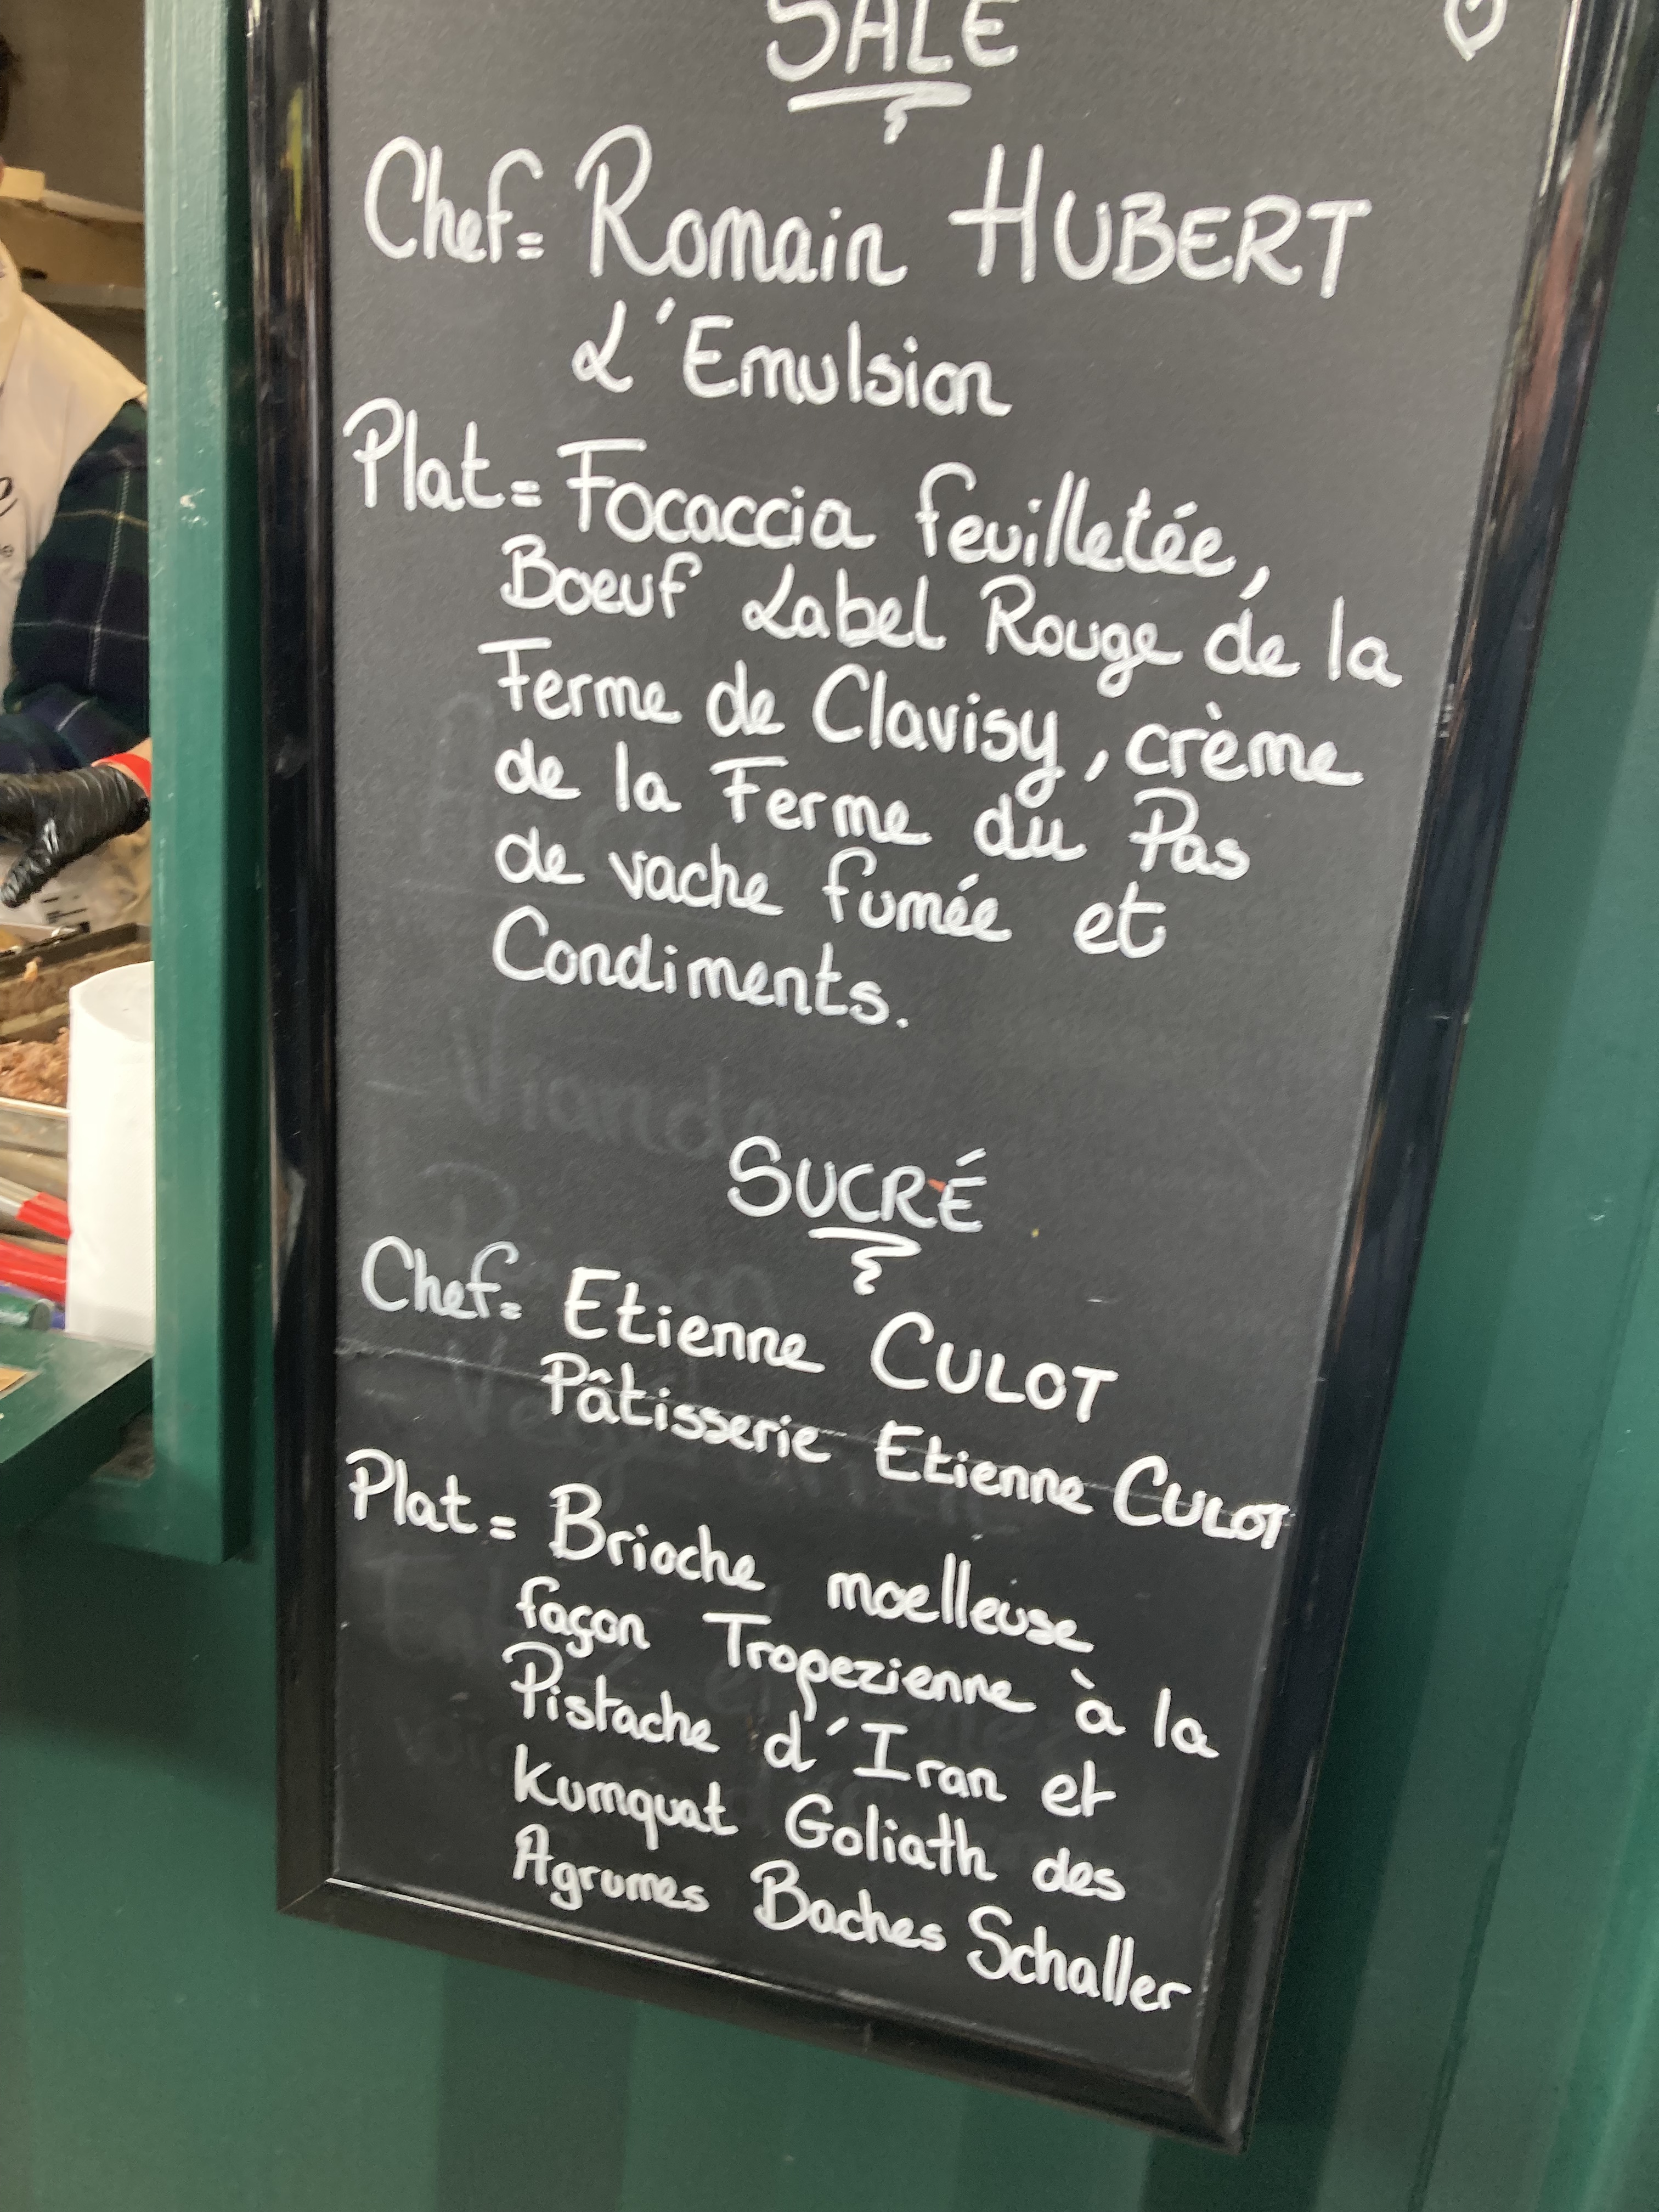 SALÉ
Chef= Romain HUBERT
L'Emulsion
Plat= Focaccia feuilletée,
Boeuf Label Rouge de la
Ferme de Clavisy, crème
de la Ferme du Pas
de vache fumée et
Condiments.
Viande
SUCRÉ
Chef= Etienne CULOT
Pâtisserie Etienne CULOT
Plat= Brioche moelleuse
façon Tropezienne à la
Pistache d'Iran et
Kumquat Goliath des
Agrumes Baches Schaller